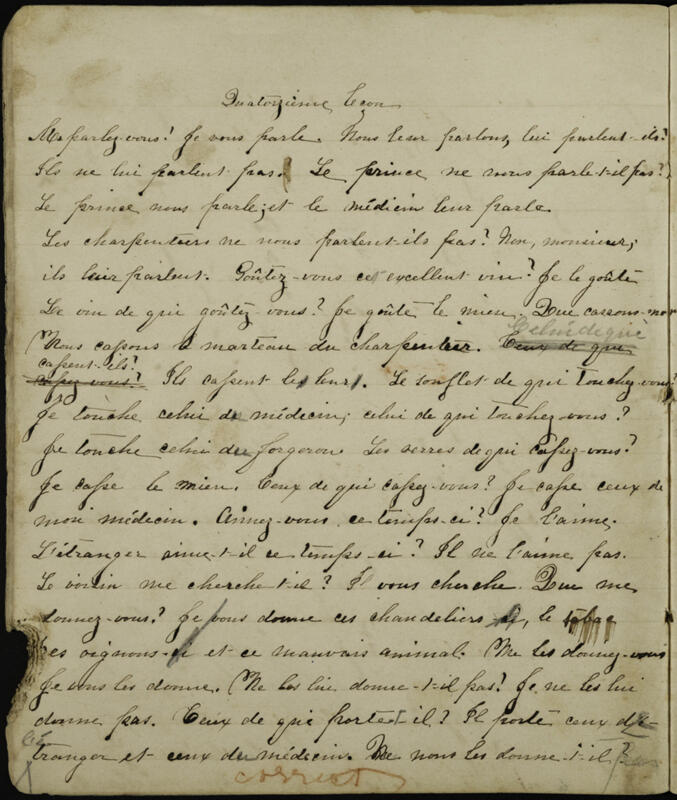 Quatorzième leçon
Me parlez-vous? Je vous parle. Nous leur parlons, lui parlent-ils?
Ils ne lui parlent pas. Le prince ne nous parle-t-il pas?
Le prince nous parle; et le médecin leur parle
Les charpentiers ne nous parlent-ils pas? Non, monsieur;
ils leur parlent. Goûtez-vous cet excellent vin? Je le goûte
Le vin de qui goûtez-vous? Je goûte le mien. Que cassons-nous
Celui de qui
Nous cassons le marteau du charpentier. Ceux de qui
cassent-ils?
cassez-vous? Ils cassent le leur. Le soufflet de qui touchez-vous?
Je touche celui du médecin; celui de qui touchez-vous?
Je touche celui du forgeron. Les verres de qui cassez-vous?
Je casse le mien. Ceux de qui cassez-vous? Je casse ceux de
mon médecin. Aimez-vous ce temps-ci? Je l'aime.
L'étranger aime-t-il ce temps-ci? Il ne l'aime pas.
Le voisin me cherche-t-il? Il vous cherche. Que me
donnez-vous? Je vous donne ces chandeliers, le tabac
ces oignons-ci et ce mauvais animal. Me les donnez-vous
Je vous les donne. Ne les lui donne-t-il pas? Je ne les lui
donne pas. Ceux de qui porte-t-il? Il porte ceux de
tranger et ceux du médecin. Ne nous les donne-t-il?
correct